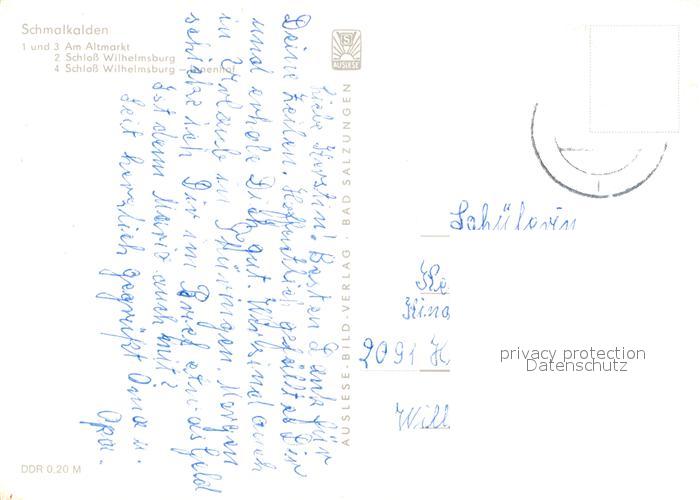 Schmalkalden
1 und 3 Am Altmarkt
2 Schloß Wilhelmsburg
4 Schloß Wilhelmsburg - Innenhof
AUSLESE
AUSLESE-BILD-VERLAG · BAD SALZUNGEN
Liebe Kerstin! Besten Dank für
Deine Zeilen. Hoffentlich gefällt es Dir
und erhole Dich gut. Wir sind auch
in Urlaub in Thüringen. Morgen
schicke ich Dir im Brief etwas Geld
Ist denn Mario auch mit?
Seit herzlich gegrüßt Oma u.
Opa.
Schülerin
Ke
Kind
2091 H
Will
privacy protection
Datenschutz
DDR 0,20 M